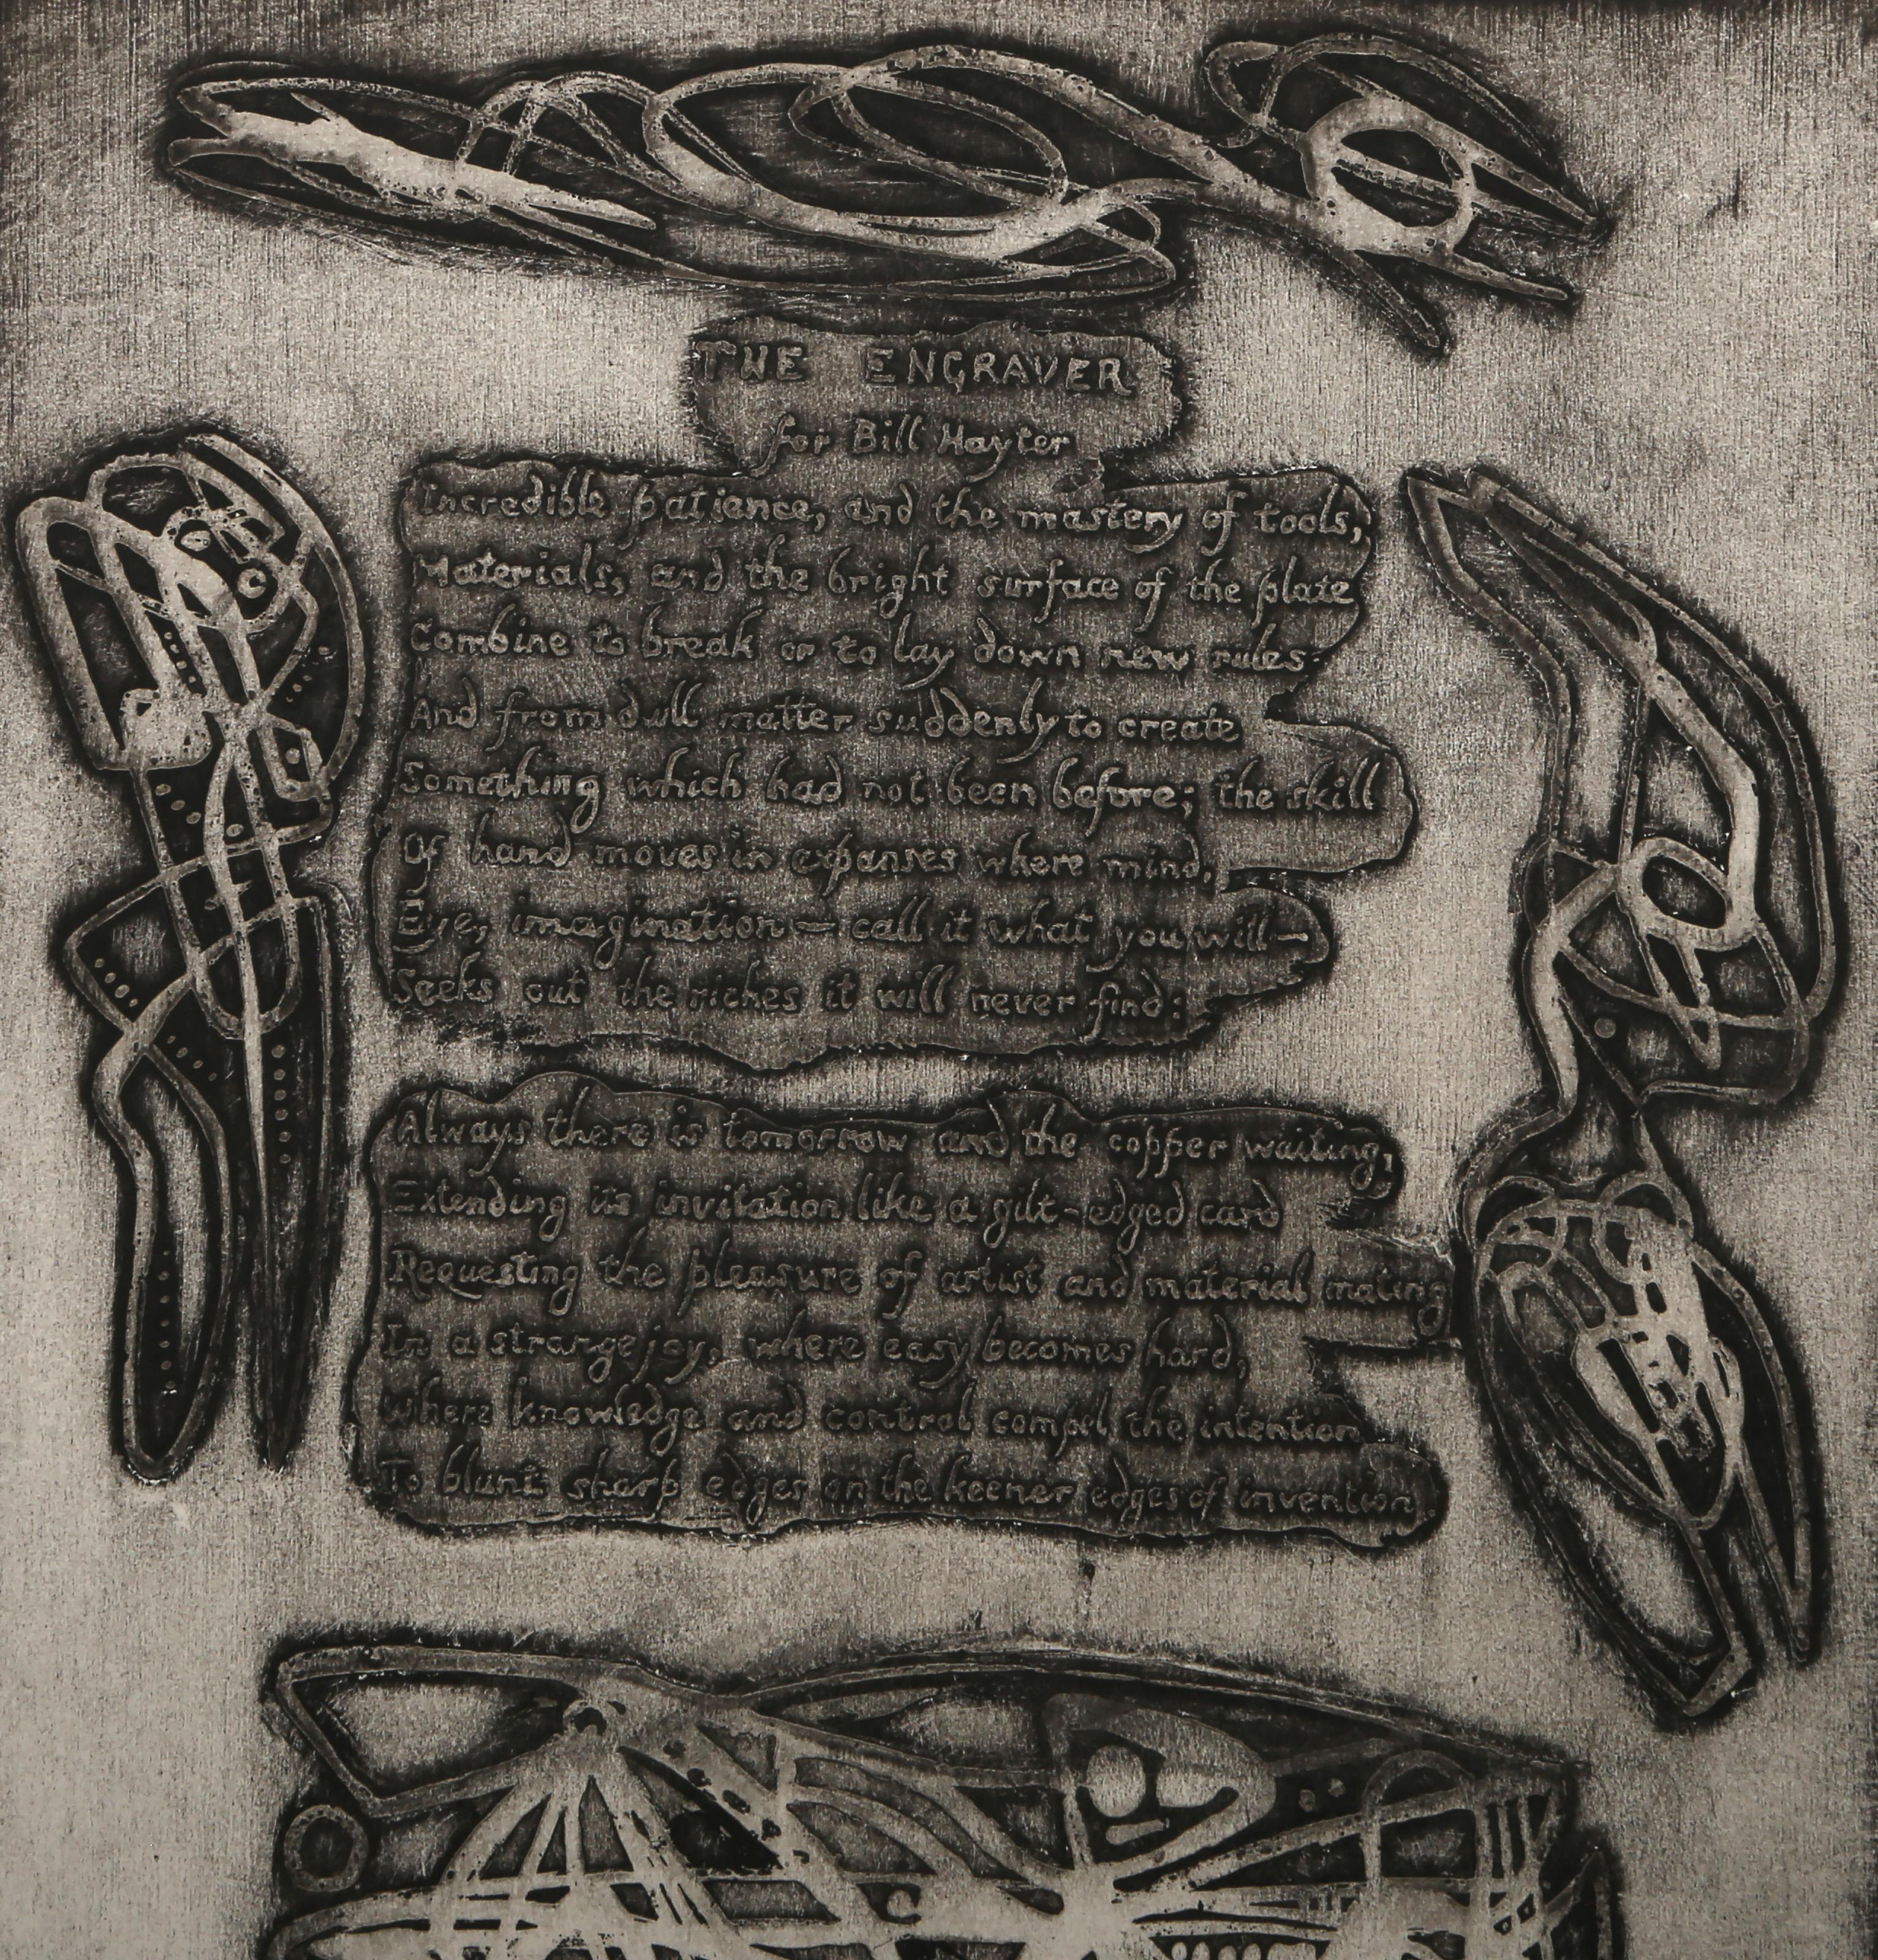 THE ENGRAVER
for Bill Hayter
Incredible patience, and the mastery of tools,
Materials, and the bright surface of the plate
Combine to break or to lay down new rules
And from dull matter suddenly to create
Something which had not been before; the skill
Of hand moves in expanses where mind,
Eye, imagination — call it what you will —
Seeks out the riches it will never find:
Always there is tomorrow and the copper waiting,
Extending its invitation like a gilt-edged card
Requesting the pleasure of artist and material mating
In a strange joy, where easy becomes hard,
Where knowledge and control compel the intention
To blunt sharp edges on the keener edges of invention.